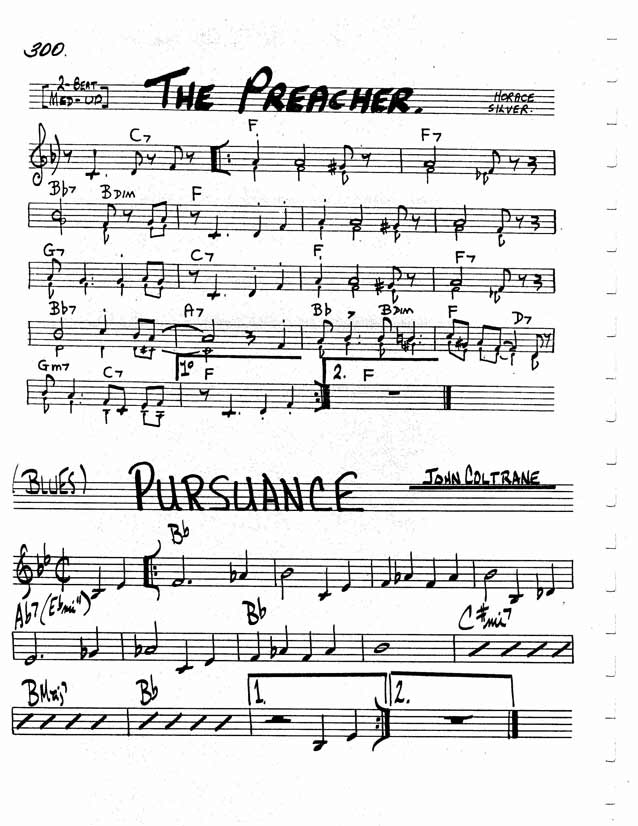 300.
2-BEAT
MED-UP
THE PREACHER.
HORACE
SILVER.
C7 F F7
Bb7 BDIM F
G7 C7 F F7
Bb7 A7 Bb BDIM F D7
Gm7 C7 1º F 2. F
(BLUES) PURSUANCE JOHN COLTRANE
Bb
Ab7 (Ebmi") Bb C#mi7
BMaj7 Bb 1. 2.